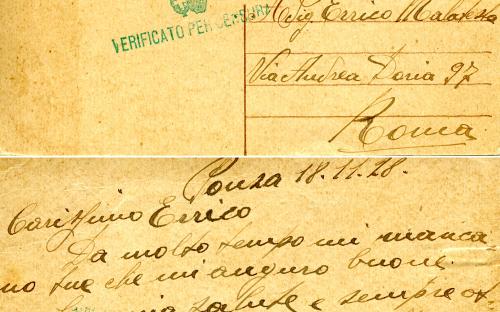 VERIFICATO PER CENSURA
A Sig Errico Malatesta
Via Andrea Doria 97
Roma
Ponza 18.11.28.
Carissimo Errico
Da molto tempo mi manca-
no tue che mi auguro buone.
salute e sempre ot-